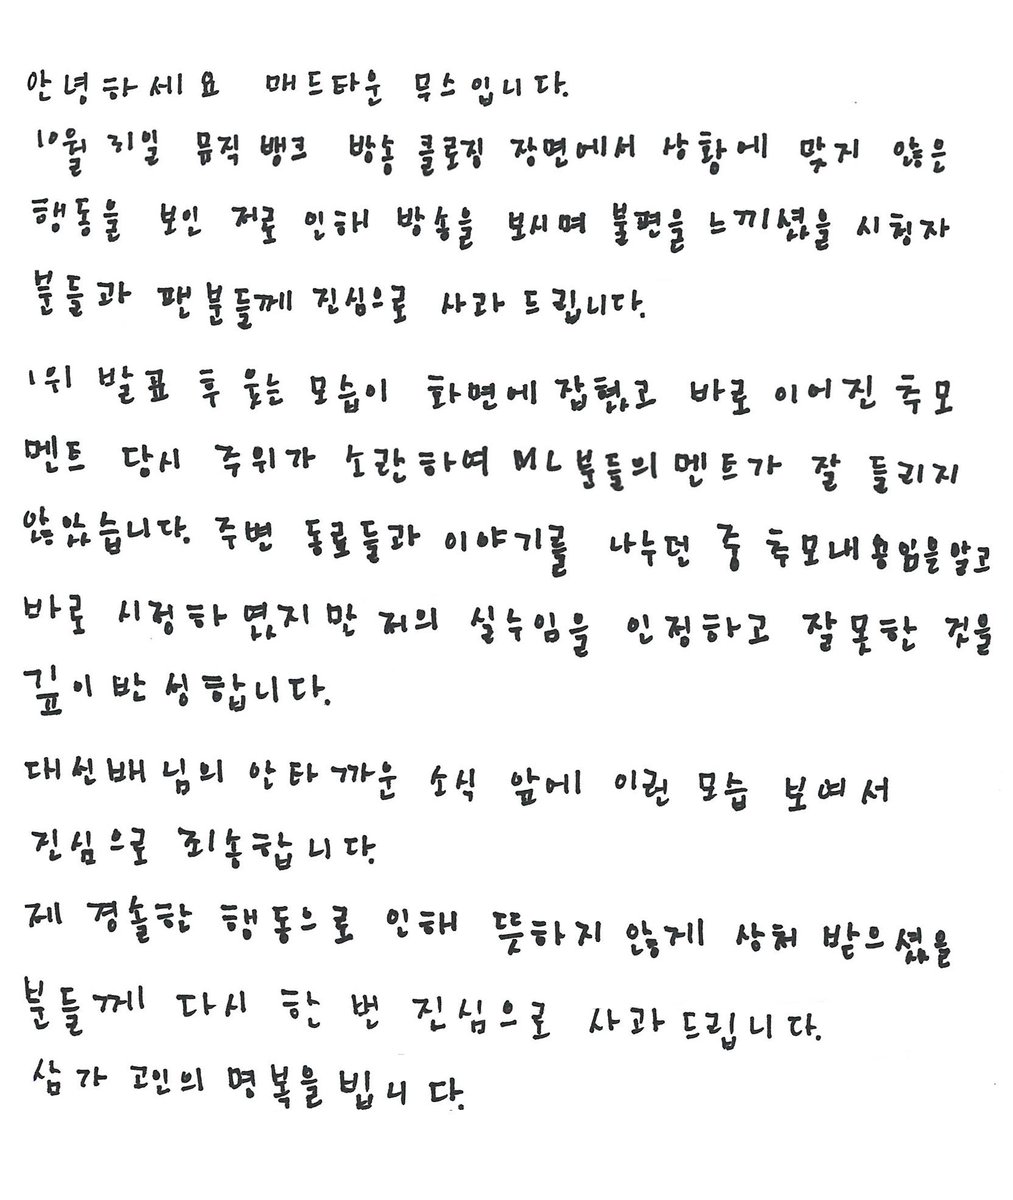 안녕하세요 매드타운 무스입니다.
10월 31일 뮤직 뱅크 방송 클로징 장면에서 상황에 맞지 않은
행동을 보인 저로 인해 방송을 보시며 불편을 느끼셨을 시청자
분들과 팬분들께 진심으로 사과 드립니다.
1위 발표 후 웃는 모습이 화면에 잡혔고 바로 이어진 추모
멘트 당시 주위가 소란하여 MC분들의 멘트가 잘 들리지
않았습니다. 주변 동료들과 이야기를 나누던 중 추모내용임을 알고
바로 시정하였지만 저의 실수임을 인정하고 잘못한 것을
깊이 반성합니다.
대선배님의 안타까운 소식 앞에 이런 모습 보여서
진심으로 죄송합니다.
제 경솔한 행동으로 인해 뜻하지 않게 상처 받으셨을
분들께 다시 한 번 진심으로 사과드립니다.
삼가 고인의 명복을 빕니다.